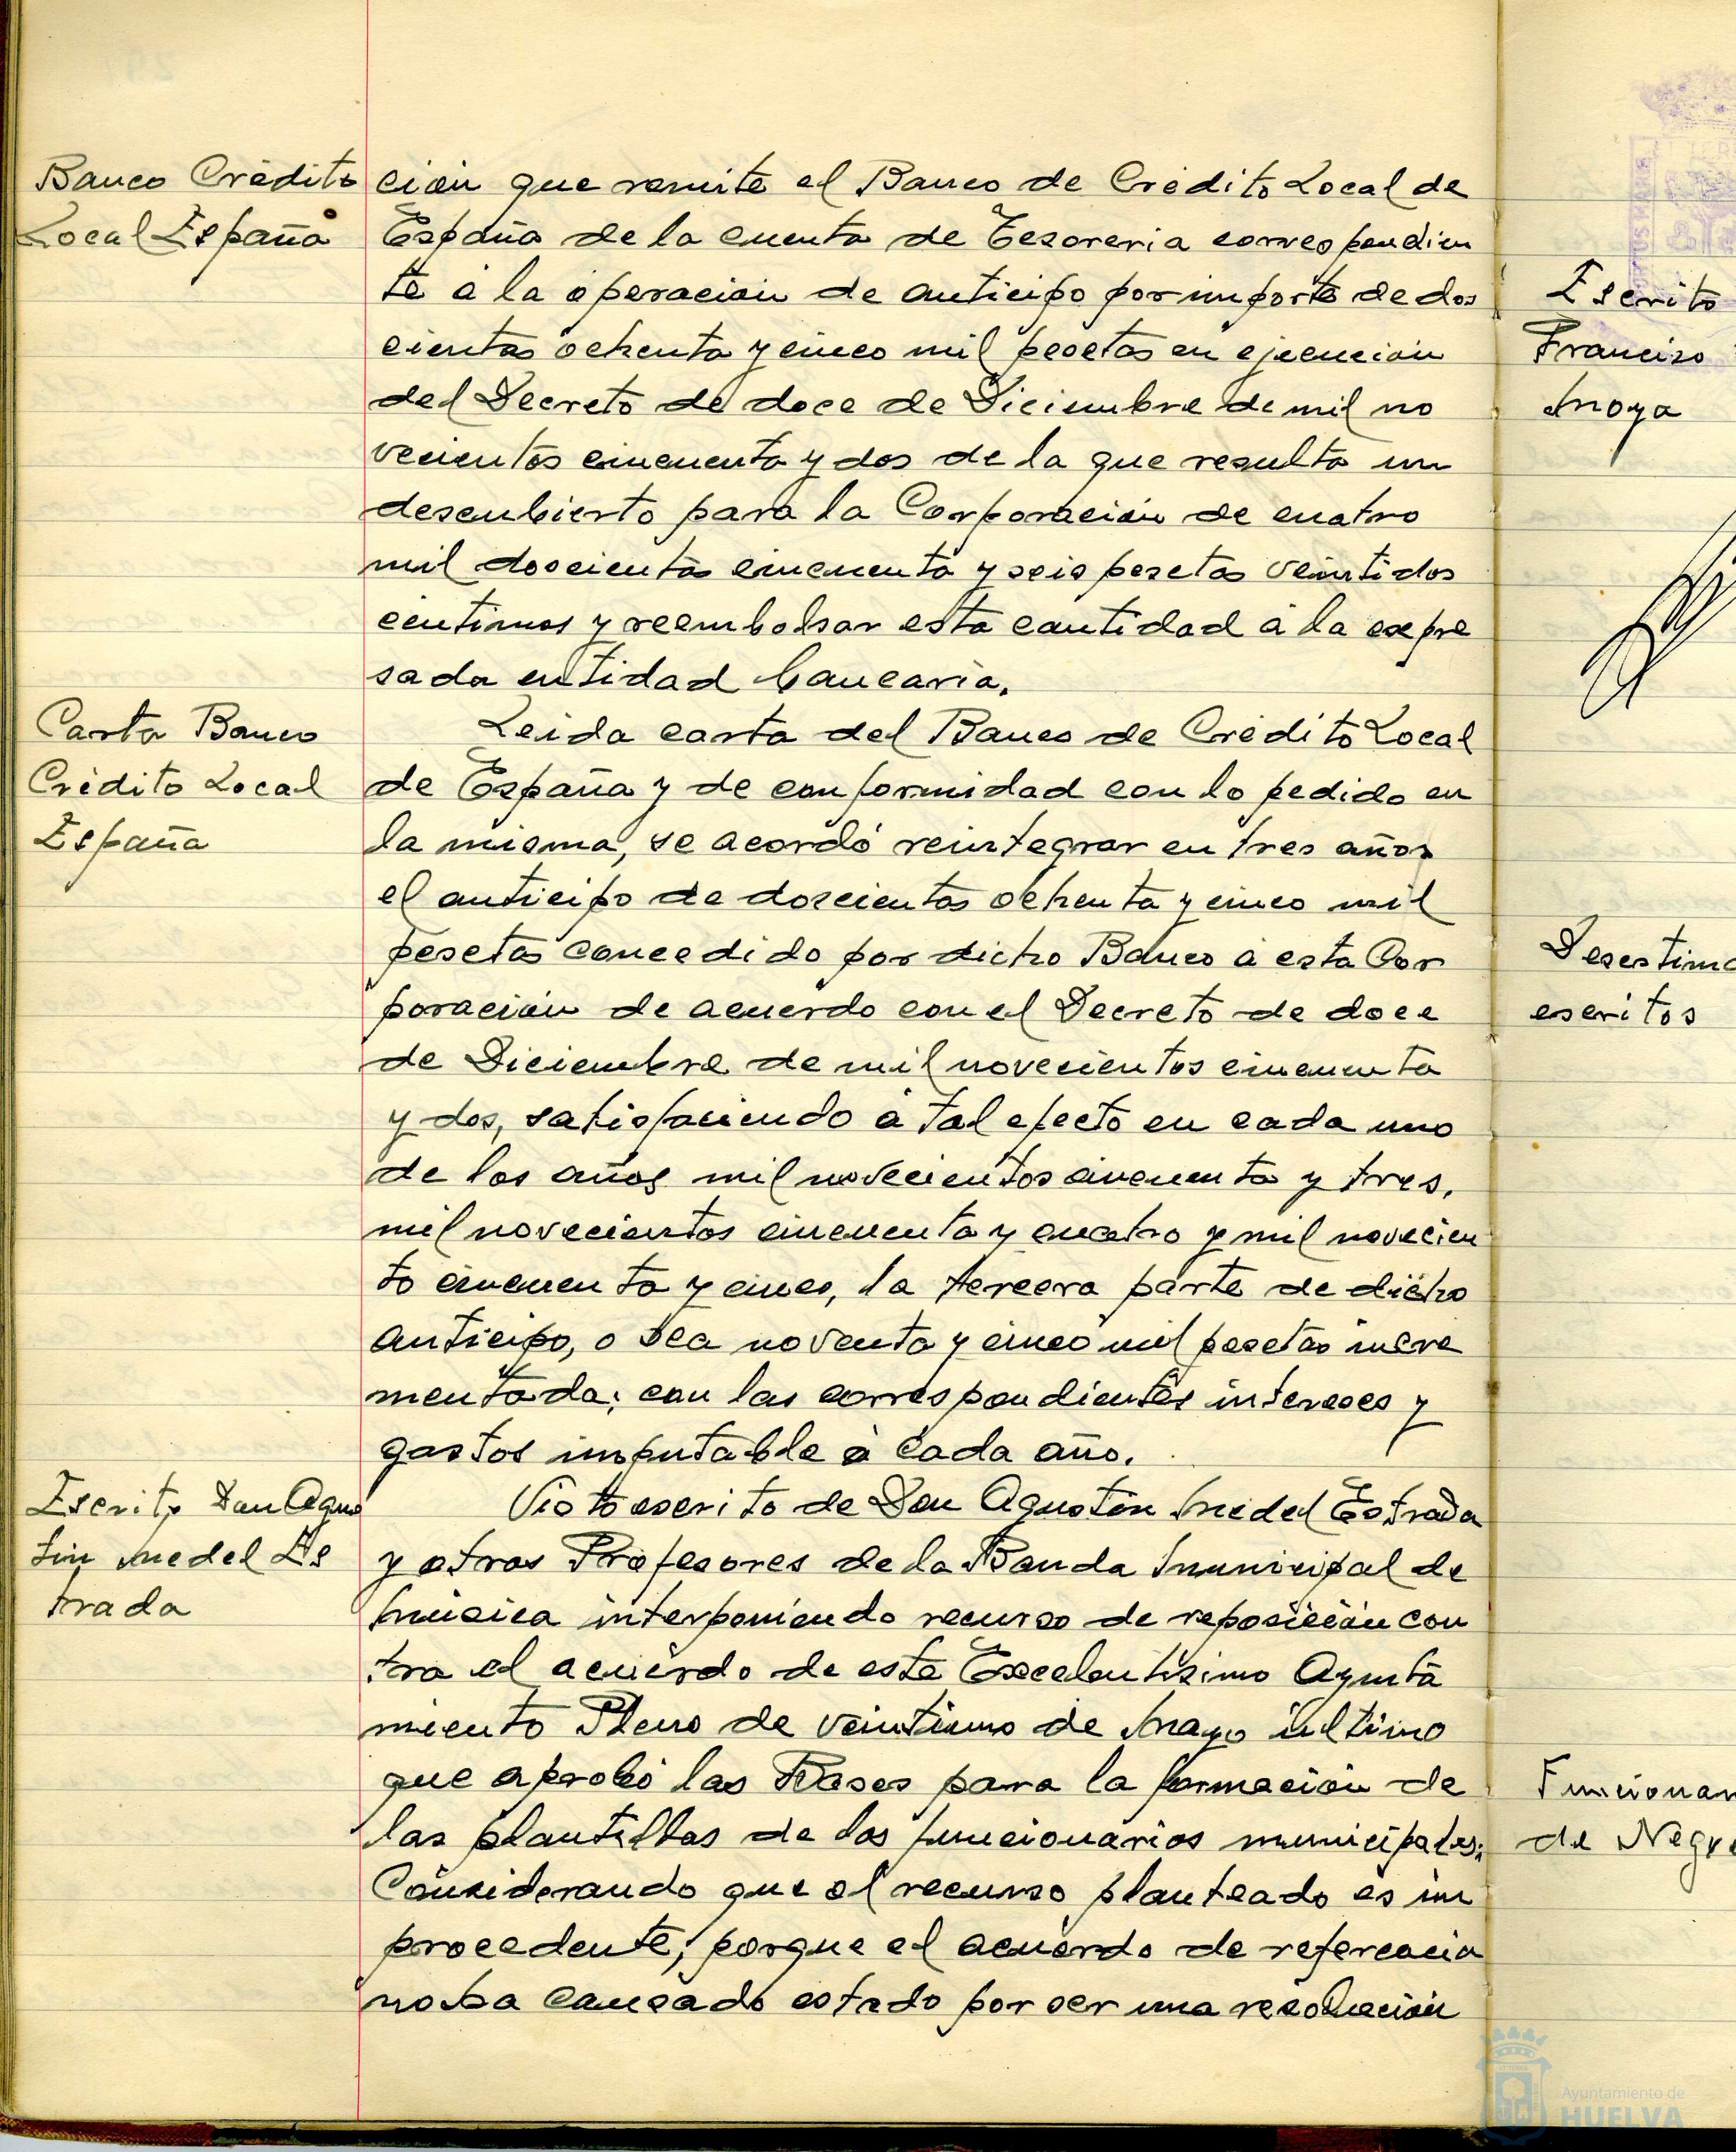 Banco Crédito
Local España
ción que remite el Banco de Crédito Local de
España de la cuenta de Tesoreria correspondien
te á la operación de anticipo por importe de dos
cientas ochenta y cinco mil pesetas en ejecución
del Decreto de doce de Diciembre de mil no
vecientos cincuenta y dos de la que resulta un
descubierto para la Corporación de cuatro
mil doscientas cincuenta y seis pesetas veintidos
centimos y reembolsar esta cantidad á la expre
sada entidad bancaria.
Carta Banco
Crédito Local
España
Leida carta del Banco de Crédito Local
de España y de conformidad con lo pedido en
la misma, se acordó reintegrar en tres años
el anticipo de doscientas ochenta y cinco mil
pesetas concedido por dicho Banco á esta Cor
poración de acuerdo con el Decreto de doce
de Diciembre de mil novecientos cincuenta
y dos, satisfaciendo á tal efecto en cada uno
de los años mil novecientos cincuenta y tres,
mil novecientos cincuenta y cuatro y mil novecien
to cincuenta y cinco, la tercera parte de dicho
anticipo, o sea noventa y cinco mil pesetas incre
mentada; con las correspondientes intereses y
gastos imputable á cada año.
Escrito Don Agus
tin Medel Es
trada
Visto escrito de Don Agustín Medel Estrada
y otros Profesores de la Banda Municipal de
Música interponiendo recurso de reposición con
tra el acuerdo de este Excelentísimo Ayunta
miento Pleno de veintiuno de Mayo último
que aprobó las Bases para la formación de
las plantillas de los funcionarios municipales;
Considerando que el recurso planteado es im
procedente, porque el acuerdo de referencia
no ha causado estado por ser una resolución
Escrito
Francisco
Moya
Desestima
escritos
Funcionar
de Negr
Ayuntamiento de
HUELVA